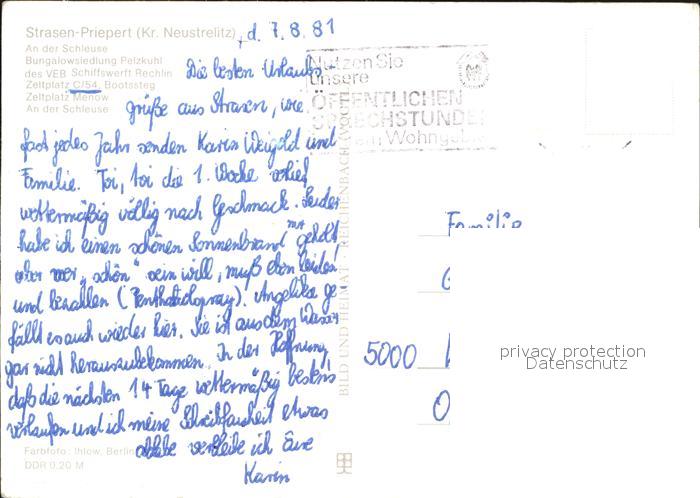 Strasen-Priepert (Kr. Neustrelitz)
, d. 7.8.81
An der Schleuse
Bungalowsiedlung Pelzkuhl
des VEB Schiffswerft Rechlin
Zeltplatz C/54, Bootssteg
Zeltplatz Menow
An der Schleuse
Die besten Urlaubs-
grüße aus Strasen, wie
fast jedes Jahr senden Karin Weigold und
Familie. Toi, toi die 1. Woche verlief
wettermäßig völlig nach Geschmack. Leider
habe ich einen schönen Sonnenbrand mir geholt
aber wer "schön" sein will, muß eben leiden
und bezahlen (Penthatholspray). Angelika ge-
fällt es auch wieder hier. Sie ist aus dem Wasser
gar nicht herauszubekommen. In der Hoffnung,
daß die nächsten 14 Tage wettermäßig bestens
verlaufen und ich meine Schreibfaulheit etwas
ablebe verbleibe ich Eure
Karin
Farbfoto: Ihlow, Berlin
DDR 0,20 M
BILD UND HEIMAT · REICHENBACH
Nutzen Sie
unsere
ÖFFENTLICHEN
SPRECHSTUNDEN
Wohngebiet
Familie
5000
privacy protection
Datenschutz